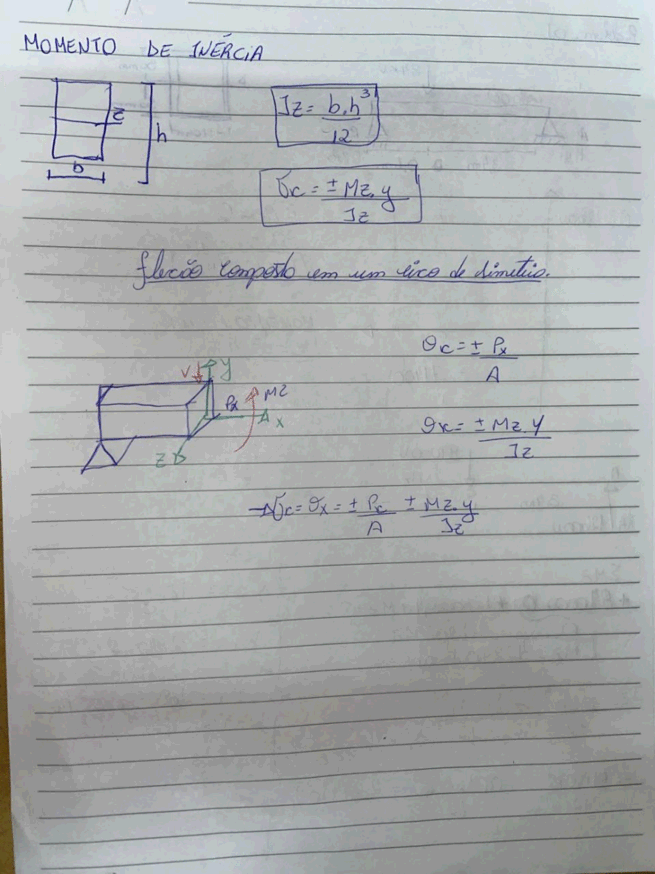 MOMENTO DE INÉRCIA
z
h
b
Iz = b.h³/12
σx = ± Mz.y/Iz
flexão composto em um eixo de simetria.
V
y
Mz
Px
x
z
σx = ± Px/A
σx = ± Mz.y/Iz
→ σx = σx = ± Px/A ± Mz.y/Iz